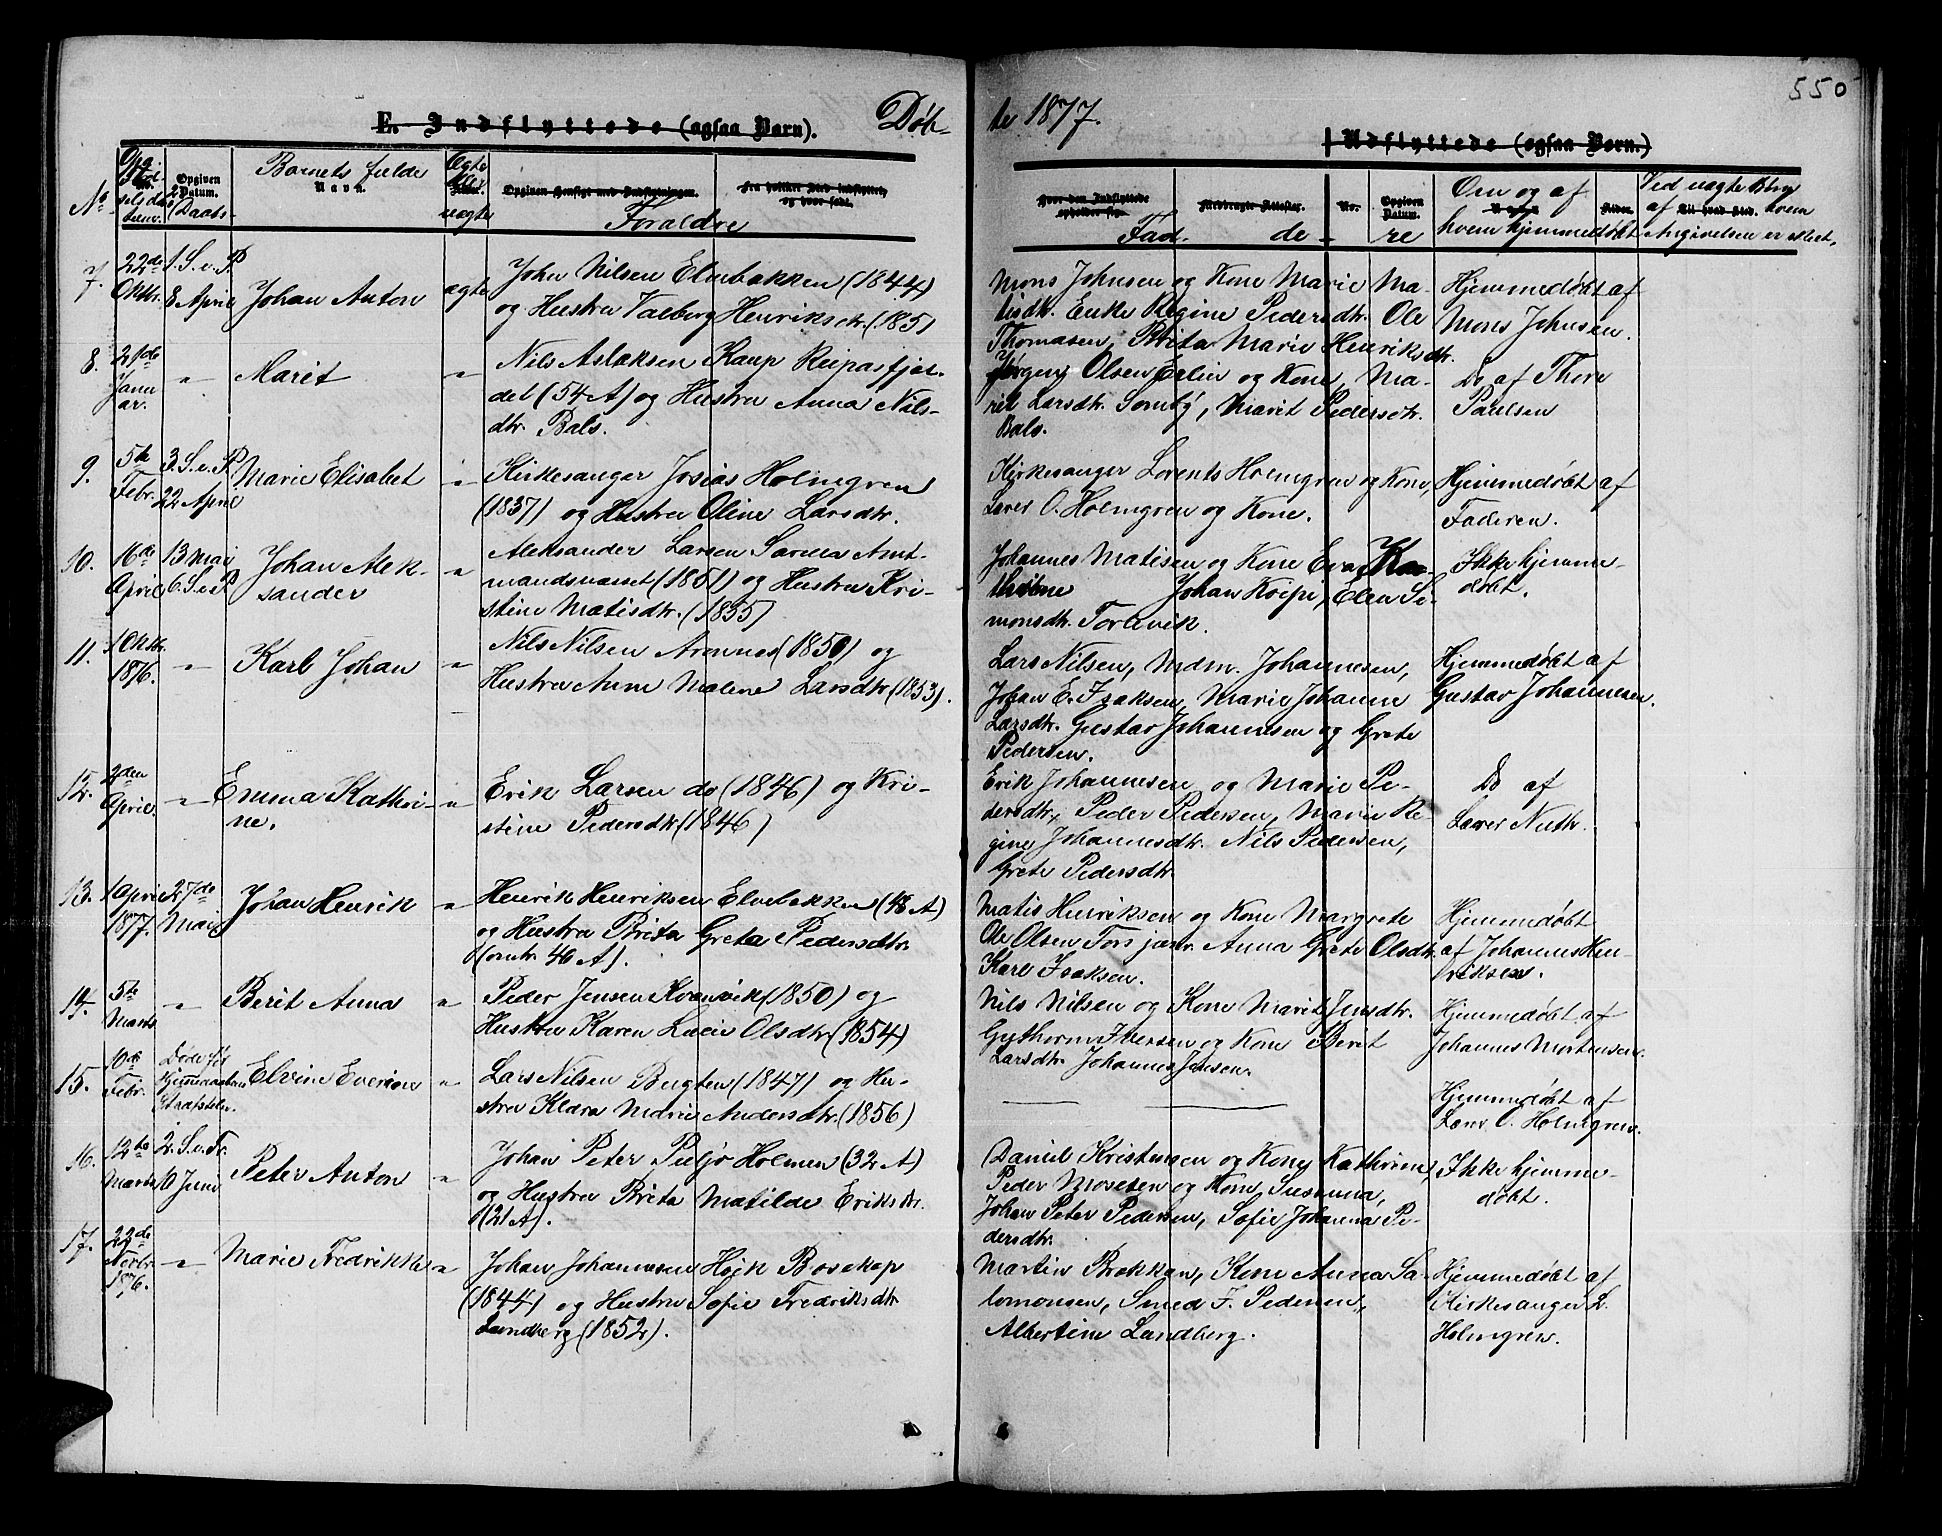 550
E. Indflyttede (ogsaa Børn). Døb-
te 1877.
Udflyttede (ogsaa Børn.)
No
Opgiven Datum.
Daabs-
Barnets fulde
Navn.
Ægte
uægte
Opgiven Hensigt med Indflytningen.
Fra hvilket Sted indflyttet, og hvor født.
Foraldre
Hvor den Indflyttede opholder sig.
Medbragte Attester.
No.
Opgiven Datum.
Fad- de- re
Om og af
hvem hjemmedøbt
Alder.
Ved uægte Børn
af hvem
Til hvad Sted.
Angivelsen er skeet,
7.
22de
Oktbr.
1. S. e. P.
8 April
Johan Anton
ægte
John Nilsen Elvebakken (1844)
og Hustru Valborg Henriksdr. (185)
Mons Johnsen og Kone Marie Ma-
tisdr. Enke Regine Pedersdr. Ole
Thomasen, Brita Marie Henriksdr.
Hjemmedøbt af
Mons Johnsen.
8.
21de
Janu
ar.
"
Maret
"
Nils Aslaksen Kaup Reipasfjor-
det (54 A) og Hustru Anna Nils-
dtr. Bals.
Jørgen Olsen Erlin og Kone, Ma-
rit Larsdtr. Somby, Marit Pedersdtr.
Bals.
Do af Thore
Paulsen
9.
5te
Febr.
3. S. e. P.
22 April
Marie Elisabet
"
Kirkesanger Josias Holmgren
(1837) og Hustru Oline Larsdtr.
Kirkesanger Lorents Holmgren og Kone,
Lærer O. Holmgren og Kone.
Hjemmedøbt af
Faderen.
10.
16de
April
13 Mai
6. S. e. P.
Johan Alek-
sander
"
Aleksander Larsen Sarilla Amt-
mandsnæset (1851) og Hustru Kri-
stine Matisdtr. (1855)
Johannes Matisen og Kone Eva Ka-
thrine Johan Koipe, Elen Si-
monsdr. Torlevik.
Ikke hjemme-
døbt.
11.
1 Oktbr.
1876.
"
Karl Johan
"
Nils Nilsen Aronnes (1850) og
Hustru Anne Malene Larsdtr. (1853).
Lars Nilsen, Mdm. Johannesen,
Johan E. Isaksen, Marie Johanne
Larsdtr. Gustav Johannesen og Grete
Pedersen.
Hjemmedøbt af
Gustav Johannesen.
12.
2den
April.
"
Emma Kathri-
ne.
"
Erik Larsen do (1846) og Kri-
stine Pedersdtr (1846)
Erik Johannesen og Marie Pe-
dersdtr., Peder Pedersen, Marie Re-
gine Johannesdtr. Nils Pedersen,
Grete Pedersdtr.
Do af
Lærer Nuth.
13.
1 April
1877.
27de
Mai
Johan Henrik
"
Henrik Henriksen Elvebakken (48 A)
og Hustru Brita Greta Pedersdtr
(omtr. 46 A).
Matis Henriksen og Kone Margrete
Ole Olsen Torsjænr Anna Grete Olsdtr.
Karl Isaksen.
Hjemmedøbt
af Johannes Hen-
riksen.
14.
5te
Marts
"
Berit Anna
"
Peder Jensen Kvænvik (1850) og
Hustru Karen Lucie Olsdtr. (1854)
Nils Nilsen og Kone Marit Jensdtr.
Gythorm Iversen og Kone Berit
Larsdtr. Johannes Jensen.
Hjemmedøbt af
Johannes Mortensen.
15.
10de
Febr.
Døde før
Elvine Everine
"
Lars Nilsen Bugten (1847) og Hu-
stru Klara Marie Andersdtr. (1856)
Hjemmedøbt af
Lærer O. Holmgren.
16.
12te
Marts
2. S. e. Tr.
10 Juni
Peter Anton
"
Johan Peter Puljo Holmen (32 A)
og Hustru Brita Matilde Eriksdr.
(21 A).
Daniel Kristensen og Kone Kathrine,
Peder Mosesen og Kone Susanna,
Johan Peter Pedersen, Sofie Johanna Pe-
dersdtr.
Ikke hjemme-
døbt.
17.
22de
Novbr.
1876.
"
Marie Fredrikke
"
Johan Johannesen Hoik Bosekop
(1844) og Hustru Sofie Fredriksdtr
Lundberg (1852).
Martin Brekkan, Kone Anna Sa-
lomonsen, Smed J. Pedersen,
Albertine Lundberg.
Hjemmedøbt af
Kirkesanger L.
Holmgren.